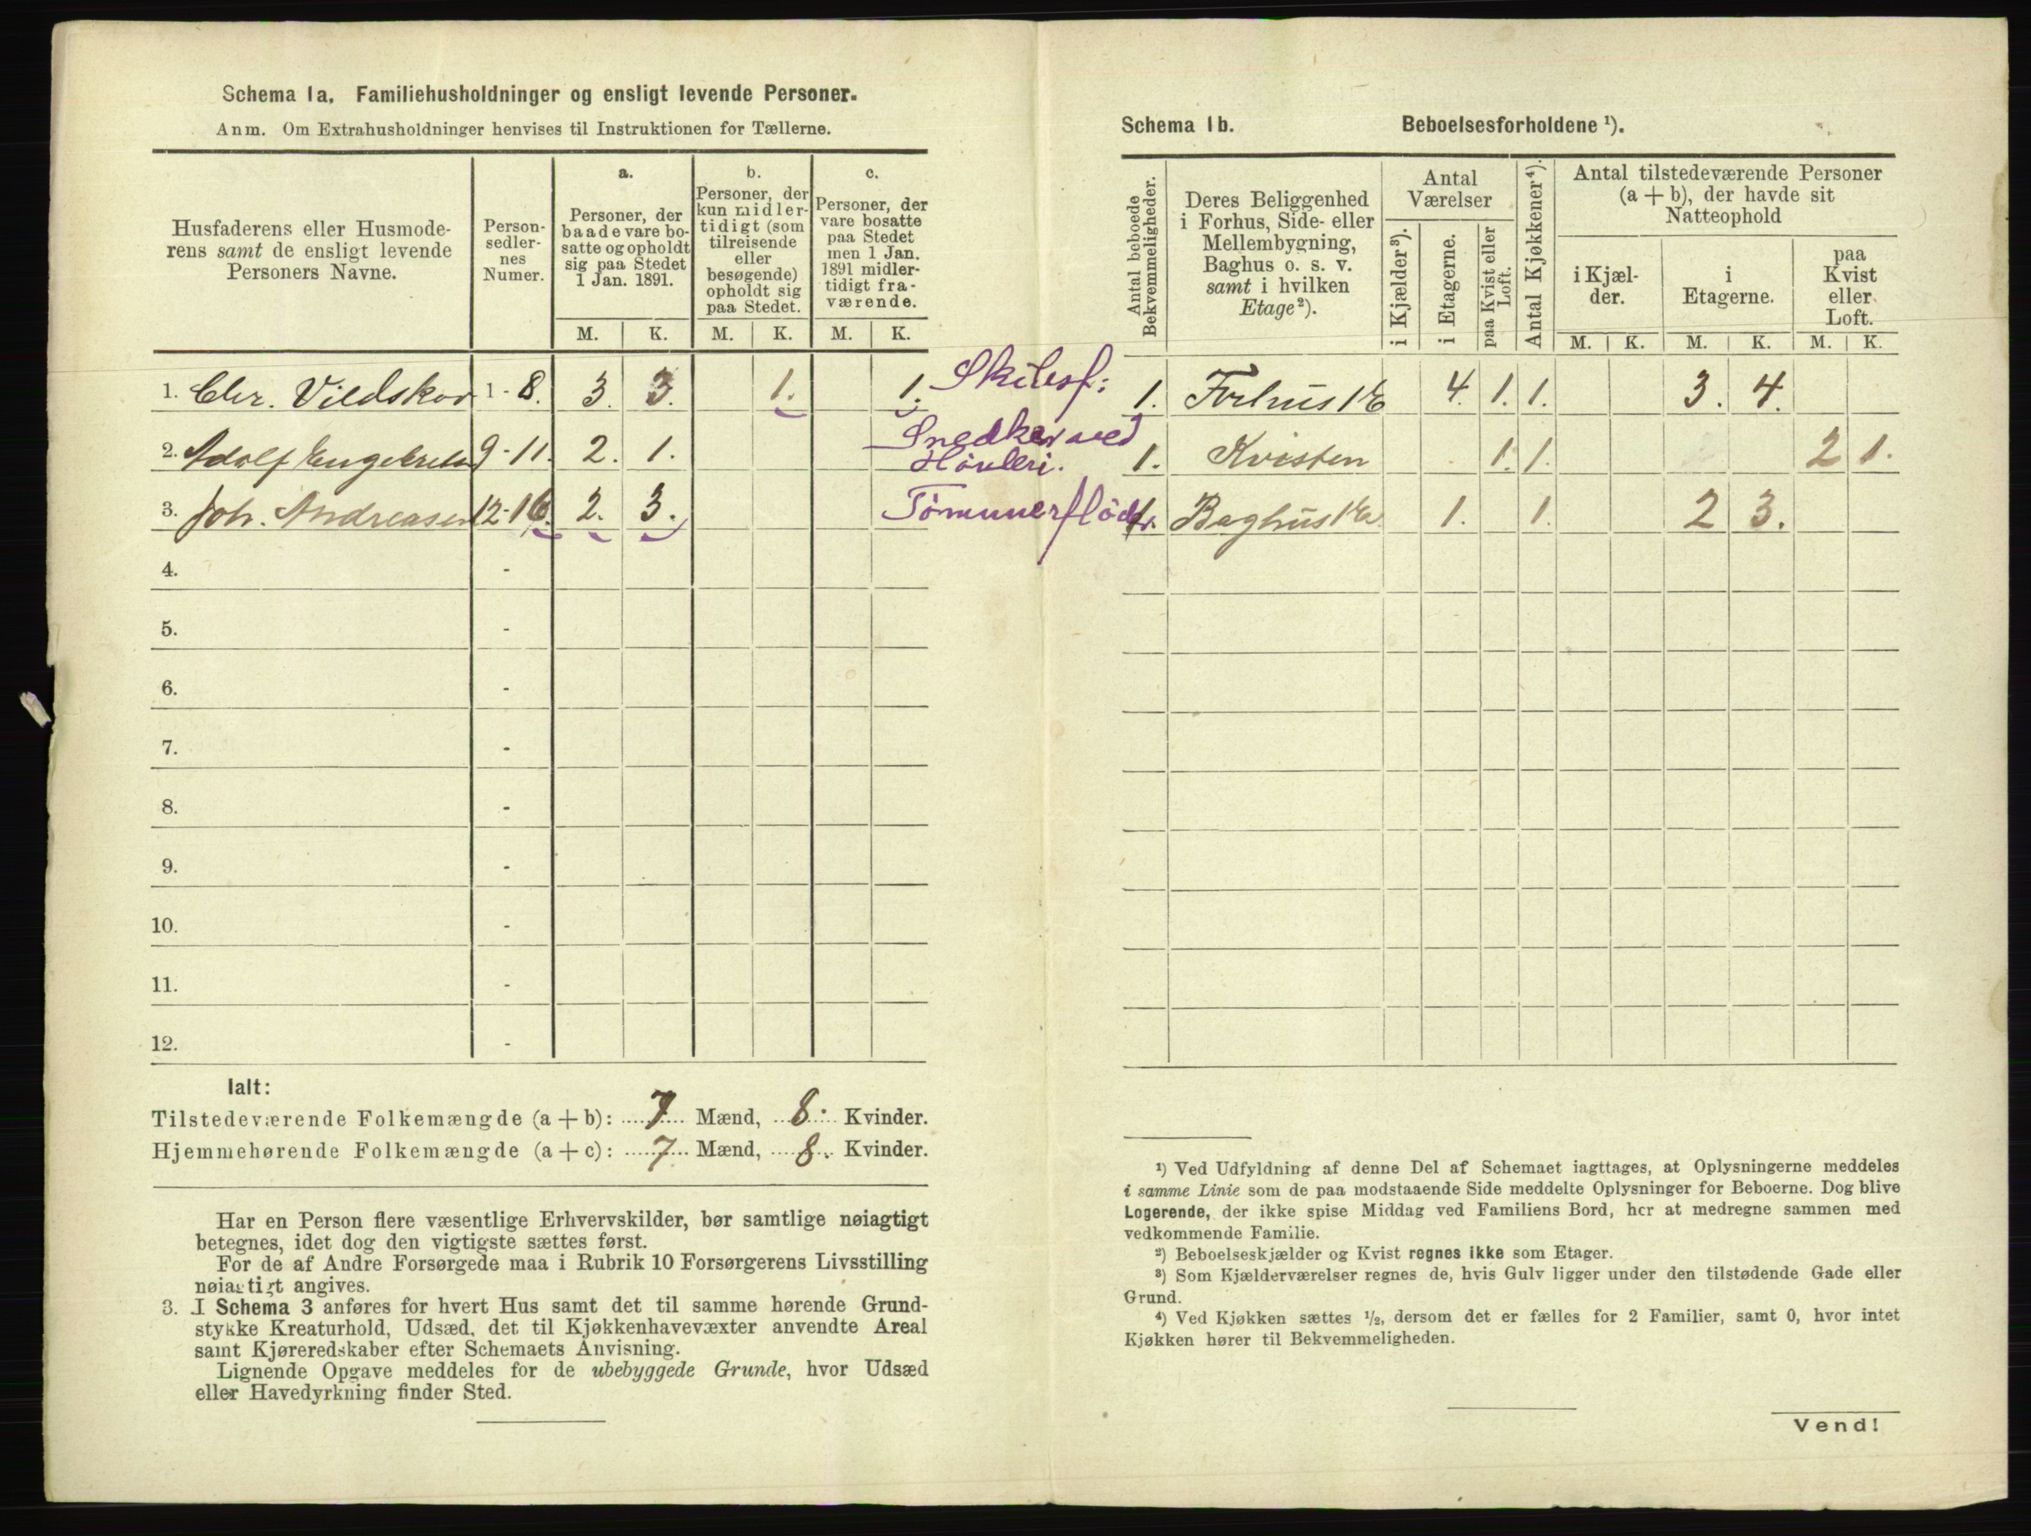 Schema 1a. Familiehusholdninger og ensligt levende Personer.
Anm. Om Extrahusholdninger henvises til Instruktionen for Tællerne.
Husfaderens eller Husmode-
rens samt de ensligt levende
Personers Navne.
Person-
sedler-
nes
Numer.
a.
Personer, der
baade vare bo-
satte og opholdt
sig paa Stedet
1 Jan. 1891.
b.
Personer, der
kun midler-
tidigt (som
tilreisende
eller
besøgende)
opholdt sig
paa Stedet.
c.
Personer, der
vare bosatte
paa Stedet
men 1 Jan.
1891 midler-
tidigt fra-
værende.
M. K. M. K. M. K.
1. Chr. Vildskov 1 - 8. 3. 3. 1. 1. Skibsf:
2. Adolf Engebretsen 9 - 11. 2. 1. Snedker ved
Høvleri.
3. Joh. Andreasen 12 - 16. 2. 3. Tømmerflöder.
4. -
5. -
6. -
7. -
8. -
9. -
10. -
11. -
12. -
Ialt:
Tilstedeværende Folkemængde (a + b): 7 Mænd, 8. Kvinder.
Hjemmehørende Folkemængde (a + c): 7 Mænd, 8. Kvinder.
Har en Person flere væsentlige Erhvervskilder, bør samtlige nøiagtigt
betegnes, idet dog den vigtigste sættes først.
For de af Andre Forsørgede maa i Rubrik 10 Forsørgerens Livsstilling
nøiagtigt angives.
3. I Schema 3 anføres for hvert Hus samt det til samme hørende Grund-
stykke Kreaturhold, Udsæd, det til Kjøkkenhavevæxter anvendte Areal
samt Kjøreredskaber efter Schemaets Anvisning.
Lignende Opgave meddeles for de ubebyggede Grunde, hvor Udsæd
eller Havedyrkning finder Sted.
Schema 1b. Beboelsesforholdene ¹).
Antal beboede
Bekvemmeligheder.
Deres Beliggenhed
i Forhus, Side- eller
Mellembygning,
Baghus o. s. v.
samt i hvilken
Etage ²).
Antal
Værelser
i Kjælder ³).
i Etagerne.
paa Kvist eller
Loft.
Antal Kjøkkener ⁴).
Antal tilstedeværende Personer
(a + b), der havde sit
Natteophold
i Kjæl-
der.
i
Etagerne.
paa
Kvist
eller
Loft.
M. K. M. K. M. K.
1. Forhus 1 E 4. 1. 1. 3. 4.
1. Kvisten 1. 1. 2 1.
1. Baghus 1 E 1. 1. 2 3.
¹) Ved Udfyldning af denne Del af Schemaet iagttages, at Oplysningerne meddeles
i samme Linie som de paa modstaaende Side meddelte Oplysninger for Beboerne. Dog blive
Logerende, der ikke spise Middag ved Familiens Bord, her at medregne sammen med
vedkommende Familie.
²) Beboelseskjælder og Kvist regnes ikke som Etager.
³) Som Kjælderværelser regnes de, hvis Gulv ligger under den tilstødende Gade eller
Grund.
⁴) Ved Kjøkken sættes ½, dersom det er fælles for 2 Familier, samt 0, hvor intet
Kjøkken hører til Bekvemmeligheden.
Vend!